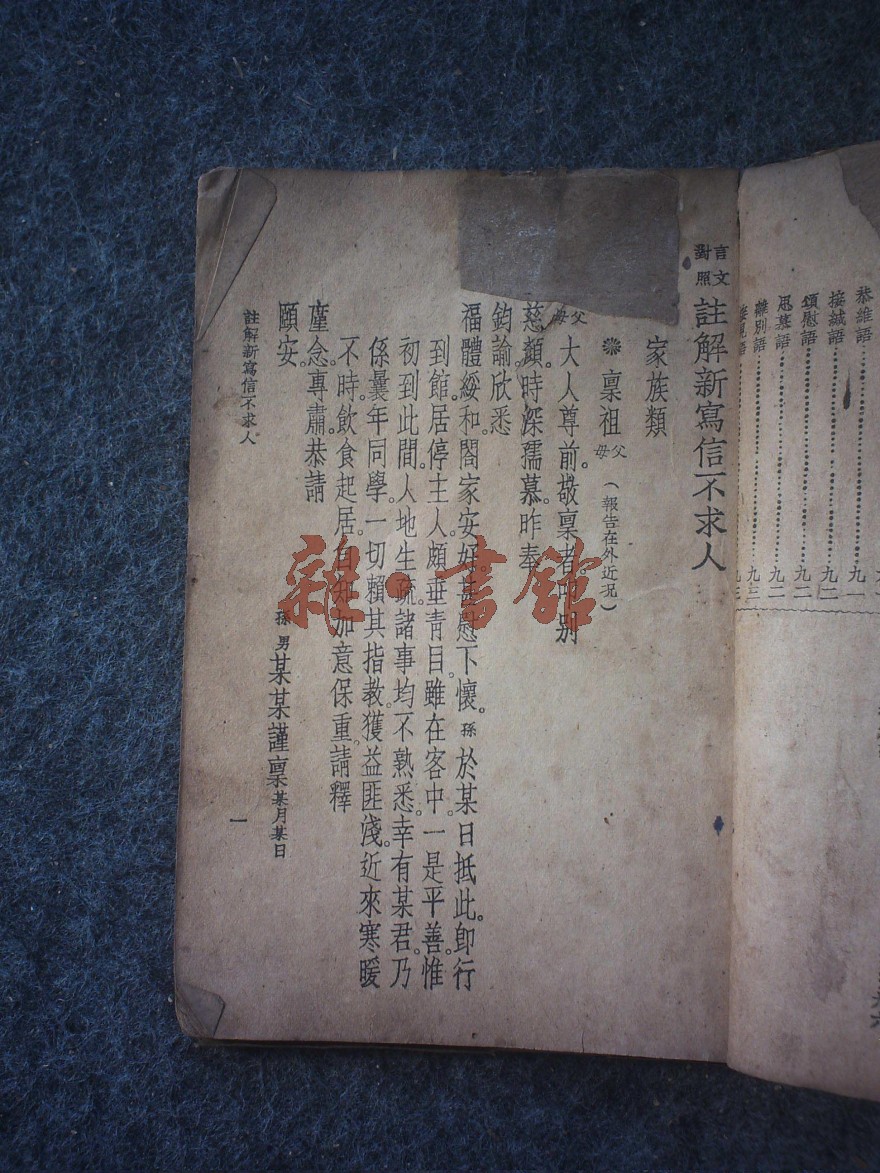 恭維語……九一
接緘語……九二
頌慰語……九二
思慕語……九二
離別語……九三
言文對照 註解新寫信不求人
家族類
❋ 稟祖父母 (報告在外近況)
父母大人尊前。敬稟者。叩別
慈顏。時深孺慕。昨奉
鈞諭。欣悉
福體綏和。閤家安好。甚慰下懷。孫於某日抵此。卽行
到館。居停主人。頗垂靑目。雖在客中。一是平善。惟
初到此間。人地生疏。諸事均不熟悉。幸有某君。乃
係曩年同學。一切賴其指教。獲益匪淺。近來寒暖
不時。飲食起居。自知加意保重。請釋
廑念。專肅。恭請
頤安。
孫男某某謹稟某月某日
註解新寫信不求人。
一
雜·書館